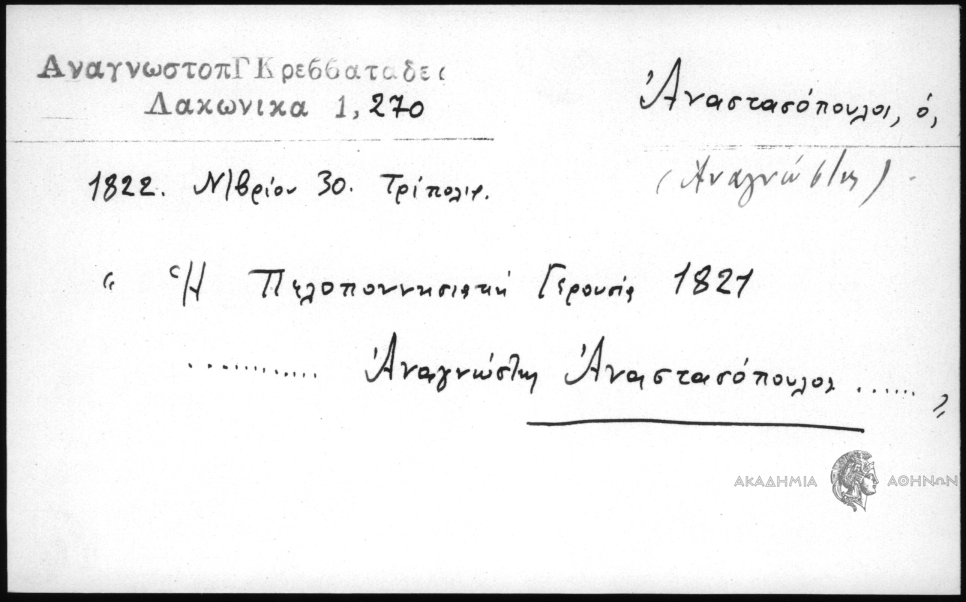 ΑναγνωστοπΓ Κρεββαταδες
Λακωνικα 1, 270
Ἀναστασόπουλος, ὁ,
(Ἀναγνώστης)
1822. Ν/βρίου 30. Τρίπολις.
“ Ἡ Πελοποννησιακή Γερουσία 1821
............ Ἀναγνώστης Ἀναστασόπουλος ...... ”
ΑΚΑΔΗΜΙΑ ΑΘΗΝΩΝ